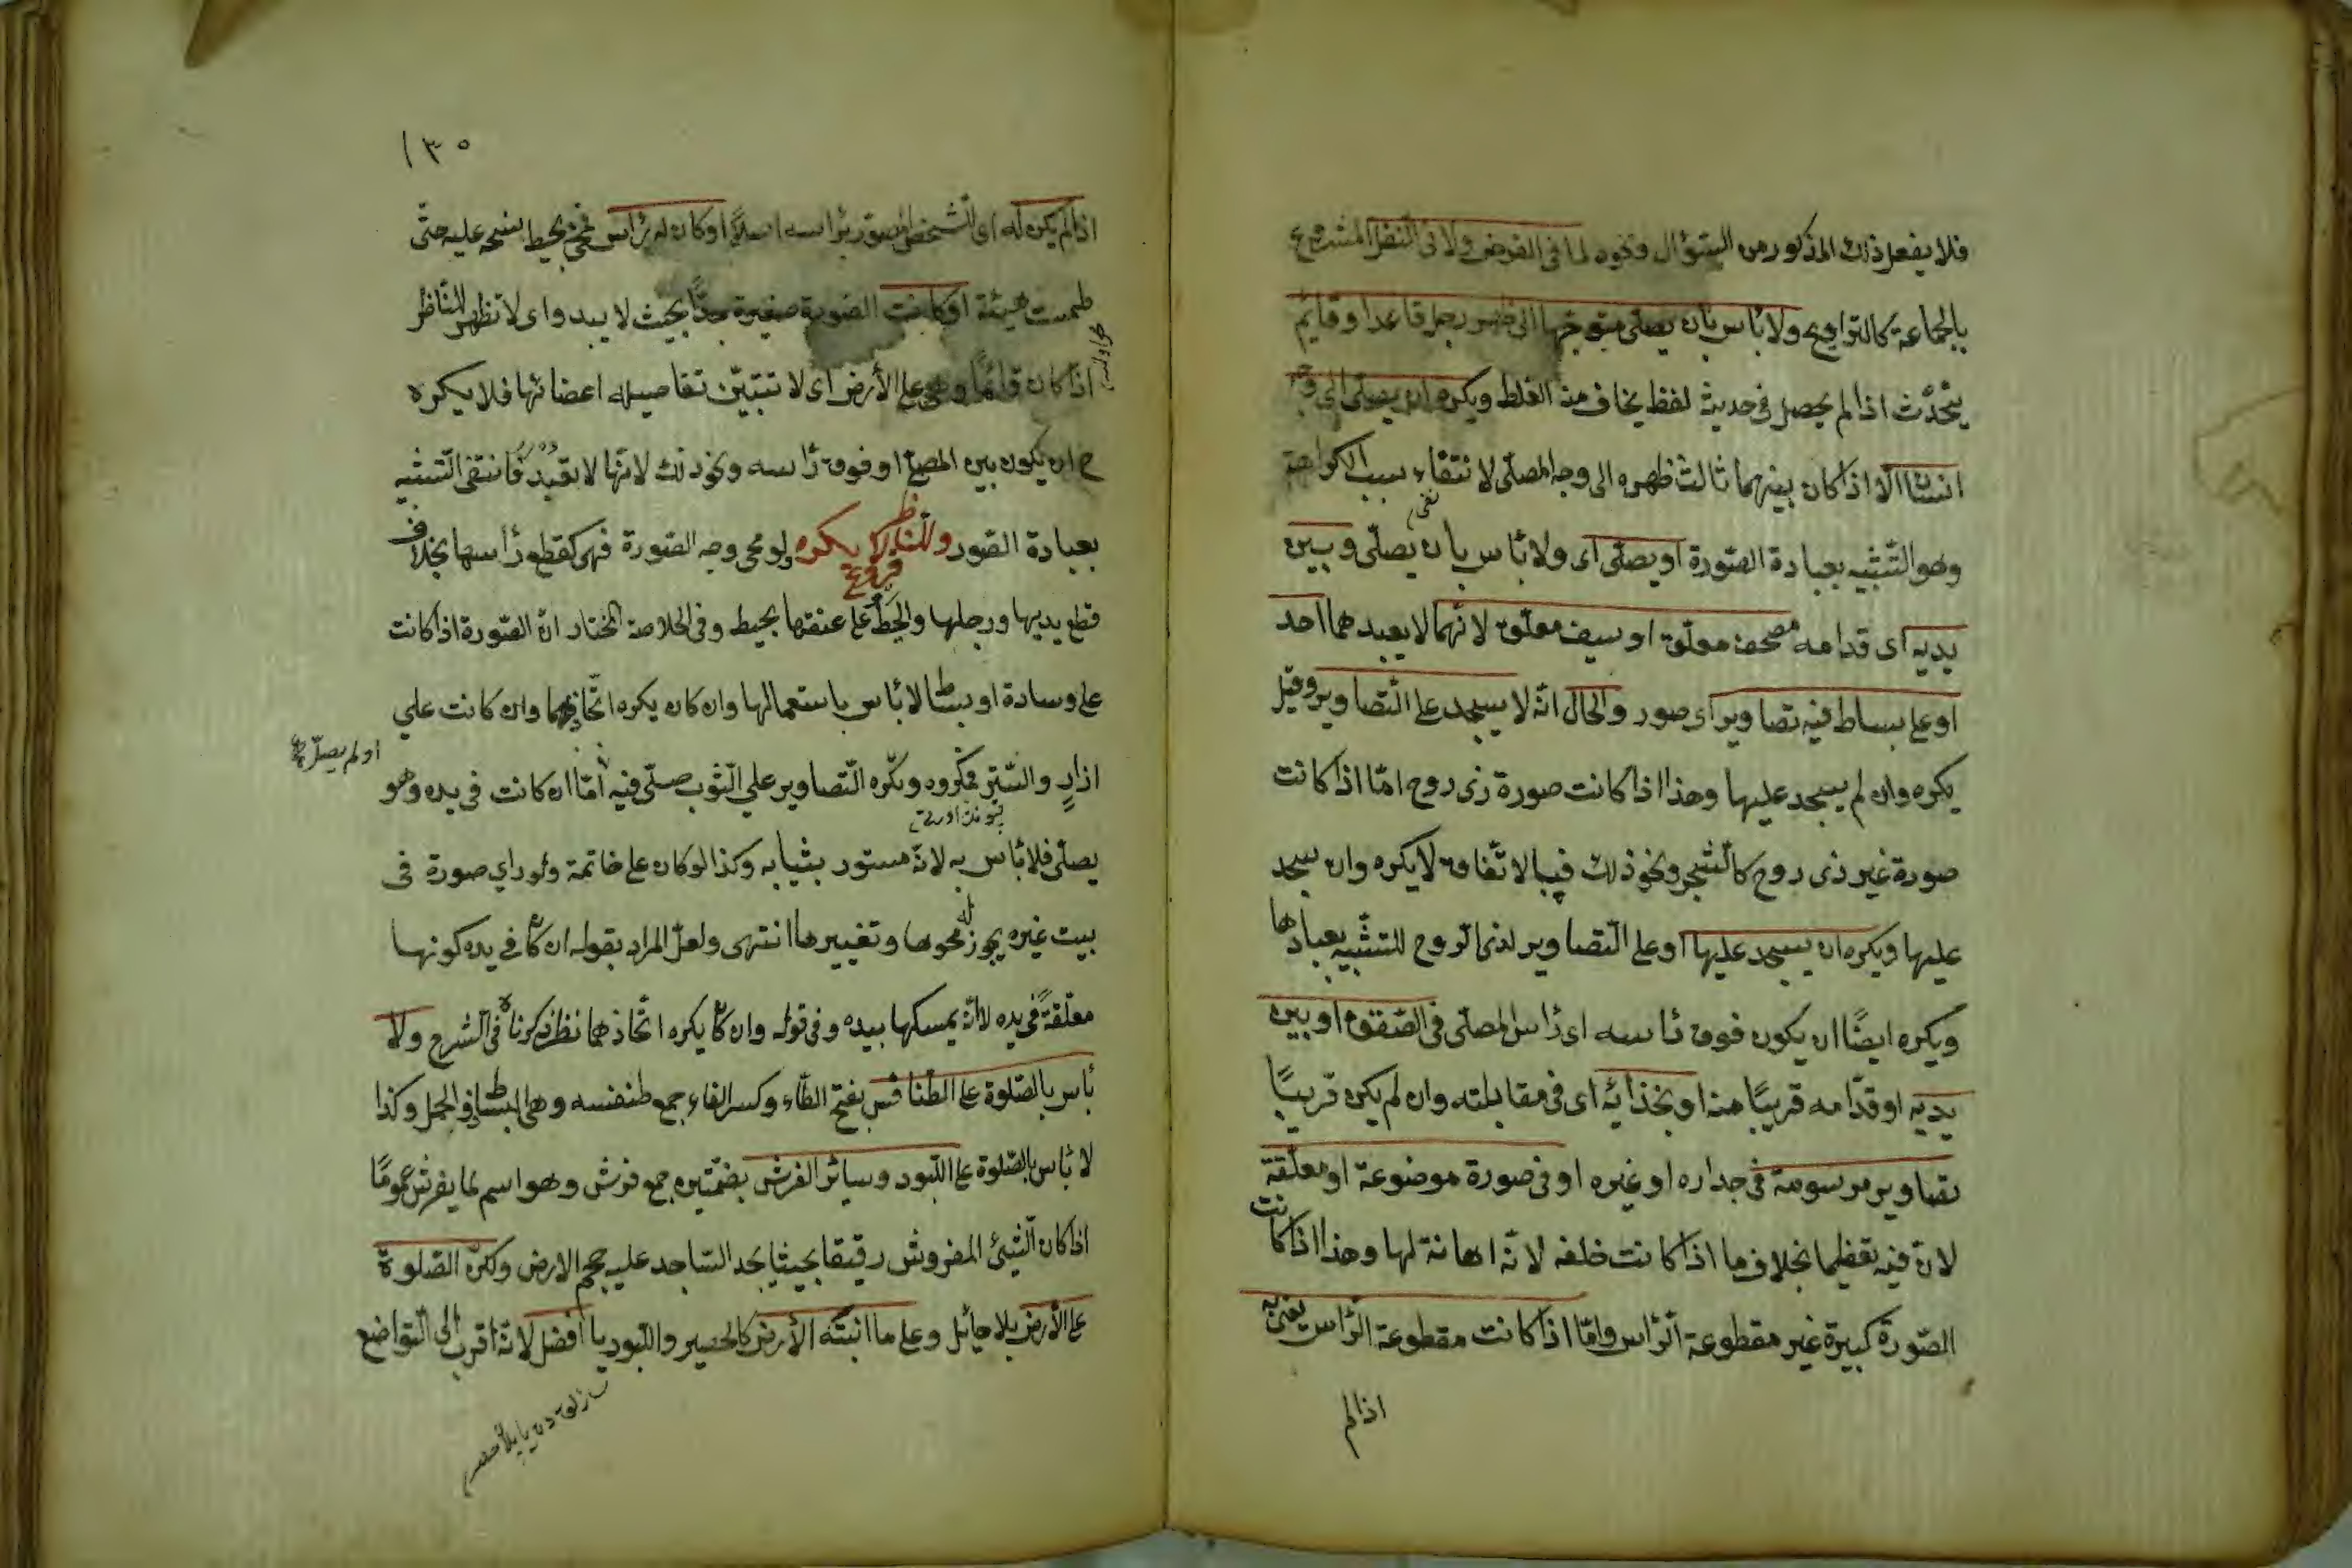 فلا يفعل ذلك المذكور من السؤال ونحوه لما فى الفرض ولا فى النفل المشروع
بالجماعة كالتراويح ولا بأس بان يصلى متوجها الى ظهر رجل قاعد او قائم
يتحدّث اذا لم يحصل فى حديثه لفظ يخاف منه الغلط ويكره ان يصلى الى وجه
انسان الّا اذا كان بينهما ثالث ظهره الى وجه المصلّى لانتفاء سبب الكراهة
وهو التشبيه بعبادة الصّورة او يصلّى اى ولا بأس بان يصلّى وبين
يديه اى قدامه مصحف معلّق او سيف معلّق لانّهما لا يعبدهما احد
او على بساط فيه تصاوير اى صور والحال انّه لا يسجد على التّصاوير وقيل
يكره وان لم يسجد عليها وهذا اذا كانت صورة ذى روح امّا اذا كانت
صورة غير ذى روح كالشّجر ونحو ذلك فبالاتّفاق لا يكره وان سجد
عليها ويكره ان يسجد عليها او على التّصاوير لذى الروح للتشبّيه بعبادها
ويكره ايضًا ان يكون فوق رأسه اى رأس المصلّى فى السّقف او بين
يديه او قدّامه قريبًا منه او بحذائه اى فى مقابلته وان لم يكن قريبًا
تصاوير مرسومة فى جداره او غيره او فى صورة موضوعة او معلّقة
لان فيه تعظيما بخلاف ما اذا كانت خلفه لانّه اهانة لها وهذا اذا كانت
الصّورة كبيرة غير مقطوعة الرّأس وامّا اذا كانت مقطوعة الرّأس يعنى به
اذا لم
١٣٥
اذا لم يكن له اى الشخص المصوّر رأسه اصلًا او كان له رأس فمحى بخيط نسجه عليه حتّى
طمست هيئته او كانت الصّورة صغيرة جدًّا بحيث لا يبدو اى لا تظهر للنّاظر
اذا كان قائمًا وهى على الأرض اى لا تتبيّن تفاصيل اعضائها فلا يكره
ح ان يكون بين المصلى او فوق رأسه ونحو ذلك لانّها لا تعبد فانتفى التّشبيه
بعبادة الصّور وللنّاظر لا يكره ولو محى وجه الصّورة فهى كقطع رأسها بخلاف
فروع
قطع يديها ورجلها والخط على عنقها بخيط وفى الخلاصة المختار انّ الصّورة اذا كانت
على وسادة او بساط لا بأس باستعمالها وان كان يكره اتّخاذهما وان كانت على
ازارٍ والسّتر فمكروه ويكره التّصاوير على الثّوب صلّى فيه امّا ان كانت فى يده وهو
او لم يصلّ
يصلّى فلا بأس به لانّه مستور بثيابه وكذا لو كان على خاتمه ولو راى صورة فى
بيت غيره يجوز له محوها وتغييرها انتهى ولعلّ المراد بقوله ان كان فى يده كونها
معلّقةً فى يده لا انّه يمسكها بيده وفى قوله وان كان يكره اتّخاذهما نظر ذكرناه فى الشّرح ولا
بأس بالصّلوة على الطّنافس بفتح الطّاء وكسر الفاء جمع طنفسه وهى البساط ذو الخمل وكذا
لا بأس بالصّلوة على اللّبود وسائر الفرش بضمّتين جمع فرش وهو اسم لما يفرش عمومًا
اذا كان الشّيئ المفروش رقيقا بحيث يجد السّاجد عليه حجم الارض ولكنّ الصّلوة
على الأرض بلا حائل وعلى ما انبتته الأرض كالحصير والبوريا افضل لانّه اقرب الى التّواضع